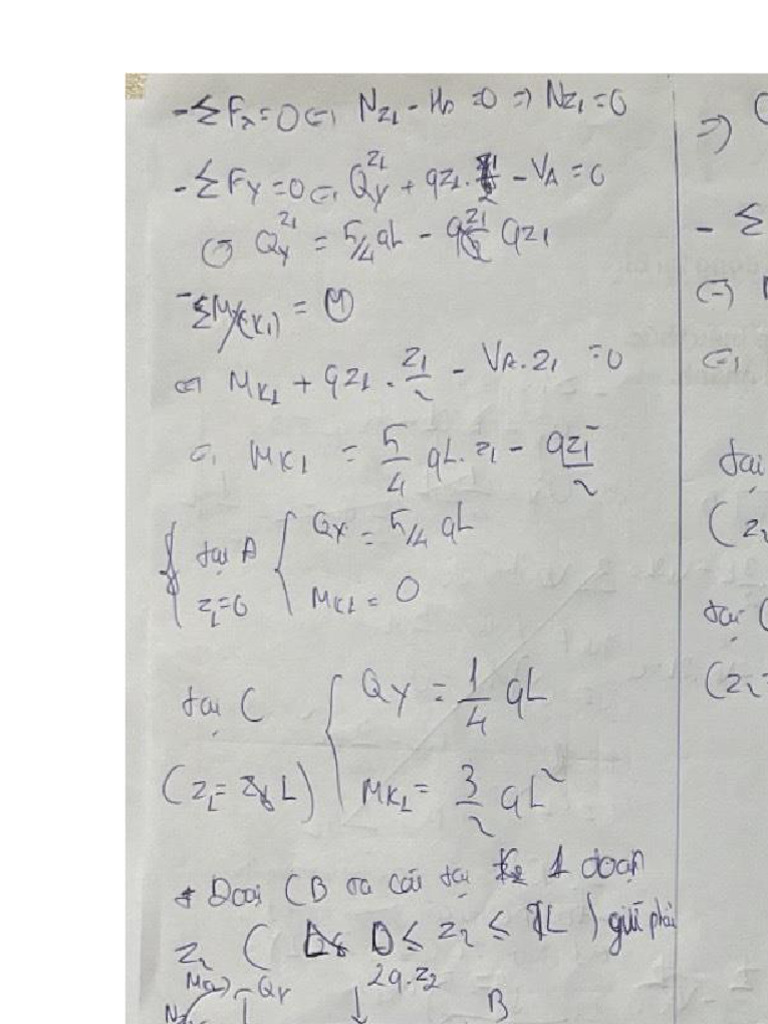 - ΣFx = 0 ⇔ Nz1 - HA = 0 ⇒ Nz1 = 0
- ΣFy = 0 ⇔ Qy^z1 + qz1 - VA = 0
⇔ Qy^z1 = 5/4 qL - qz1
- ΣM/(K1) = 0
⇔ MK1 + qz1 . z1/2 - VA . z1 = 0
⇔ MK1 = 5/4 qL . z1 - qz1²/2
tại A { Qy = 5/4 qL
z1 = 0 { MK1 = 0
tại C { Qy = 1/4 qL
(z1 = L) { MK1 = 3/2 qL²
+ Đoạn CB ta cắt tại 1 đoạn
z2 ( 0 ≤ z2 ≤ L ) giữ phải
2q.z2
Qy
B
⇒
- Σ
⇔
⇔
tại
(z2
tại
(z2 =